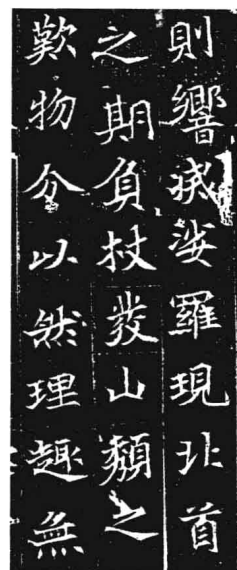 則響戒娑羅現北首
之期負杖發山頹之
歎物分以然理趣無